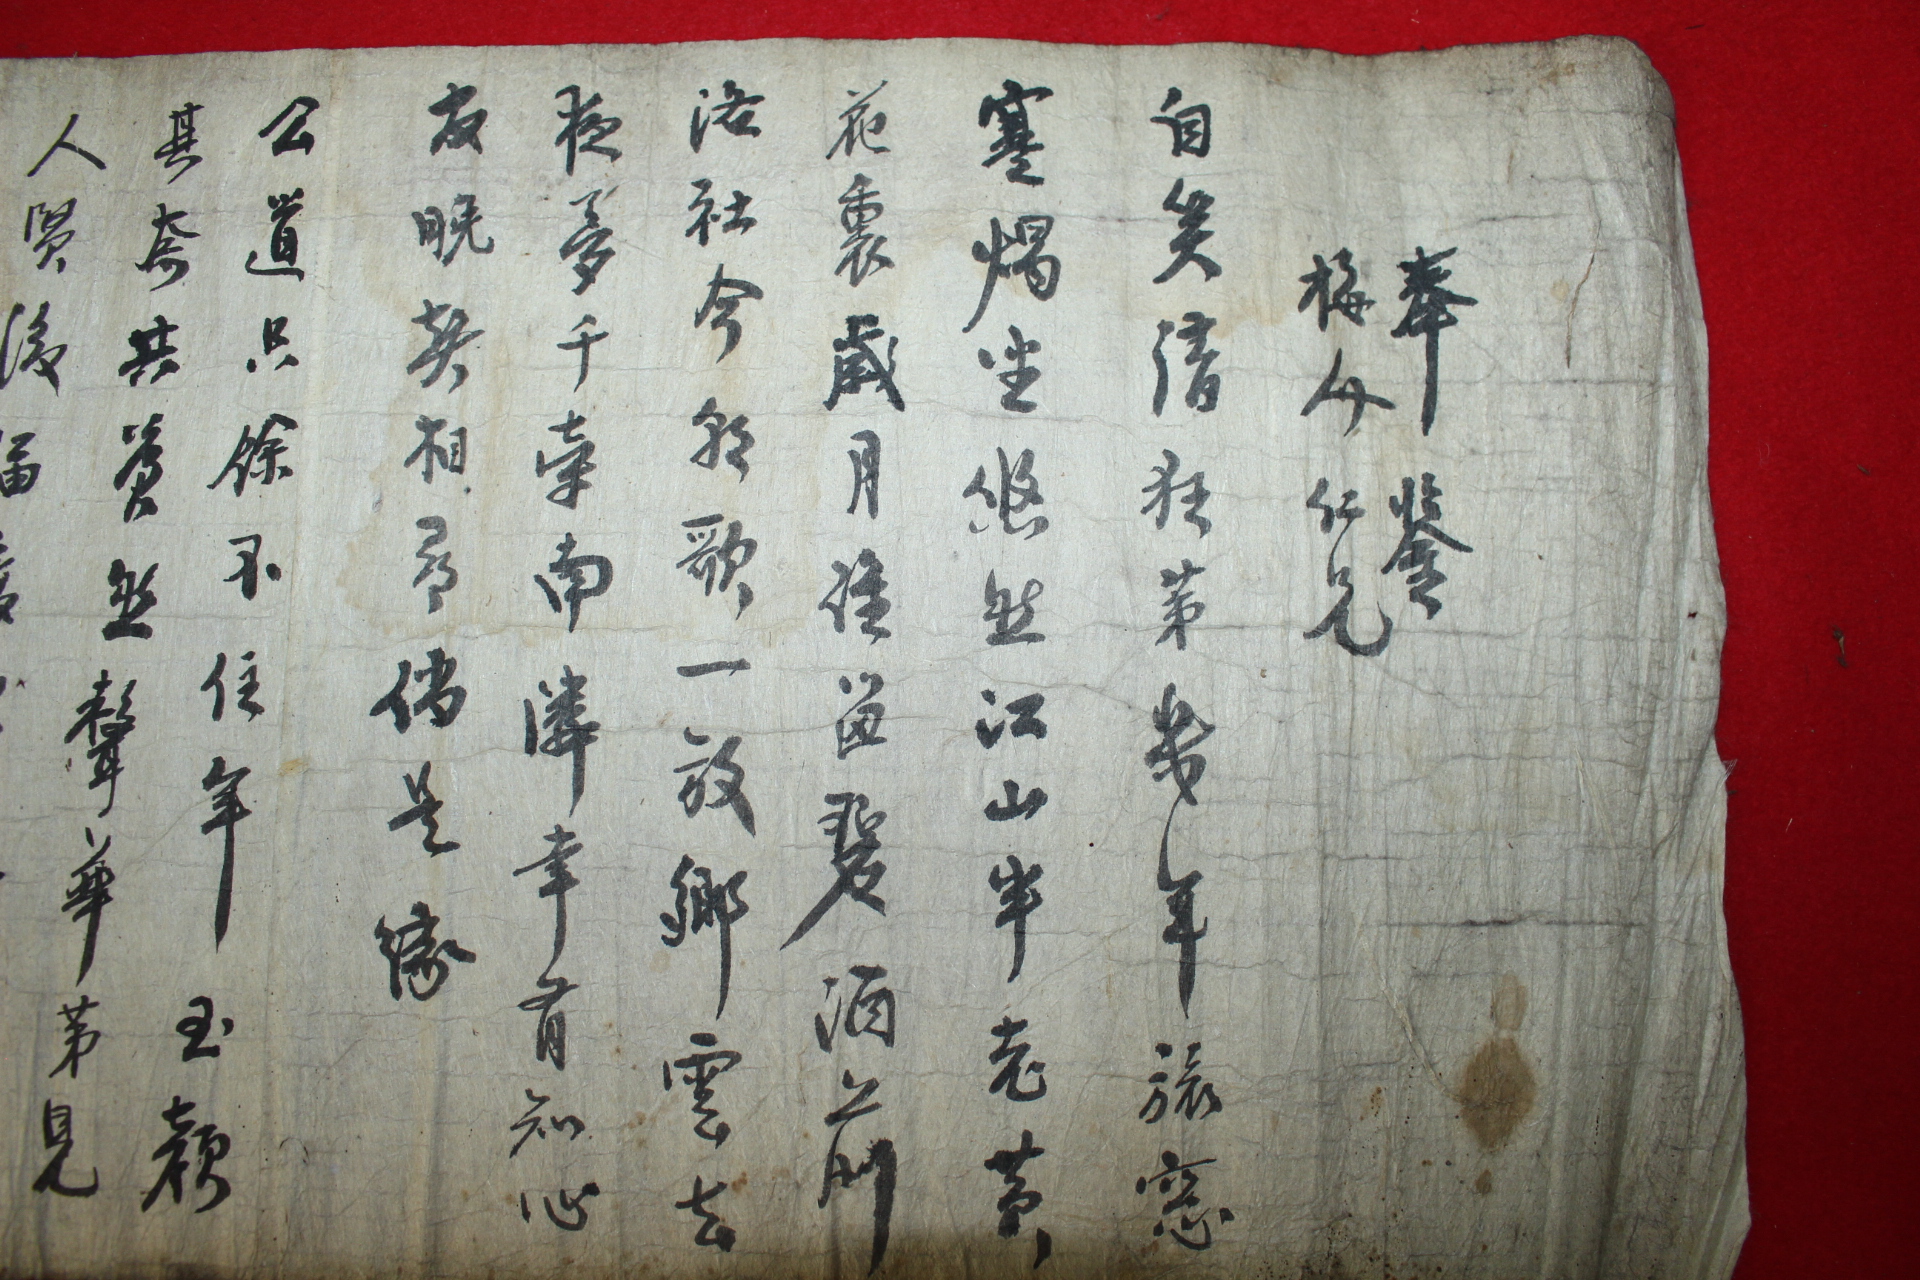 奉 鑒
梅人仁兄
自笑清狂第幾年旅窓
寒燭坐悠然江山半老黃
花裏歲月誰留碧酒前
洛社今朝歌一放鄉雲去
夜夢千牽南隣幸有知心
友晩契相尋偶是緣
公道只餘不住年 玉顔
其奈共蒼然聲華第見
人賢後